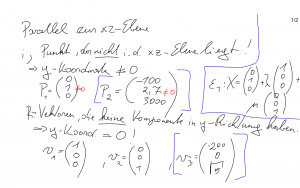 1/2
Parallel zur xz-Ebene
i, Punkt, der nicht i.d. xz-Ebene liegt!
⇒ y-Koordinate ≠ 0
P₁ = (0 1 0) ≠0 [P₂ = (-100 2,7 3000) ≠0
E₁: X = (0 1 0) + λ (1 0 0) + μ (0 0 1)
R.-Vektoren, die keine Komponente in y-Richtung haben.
⇒ y-Koord = 0!
v₁ = (1 0 0), v₂ = (0 0 1), [v₃ = (-200 0